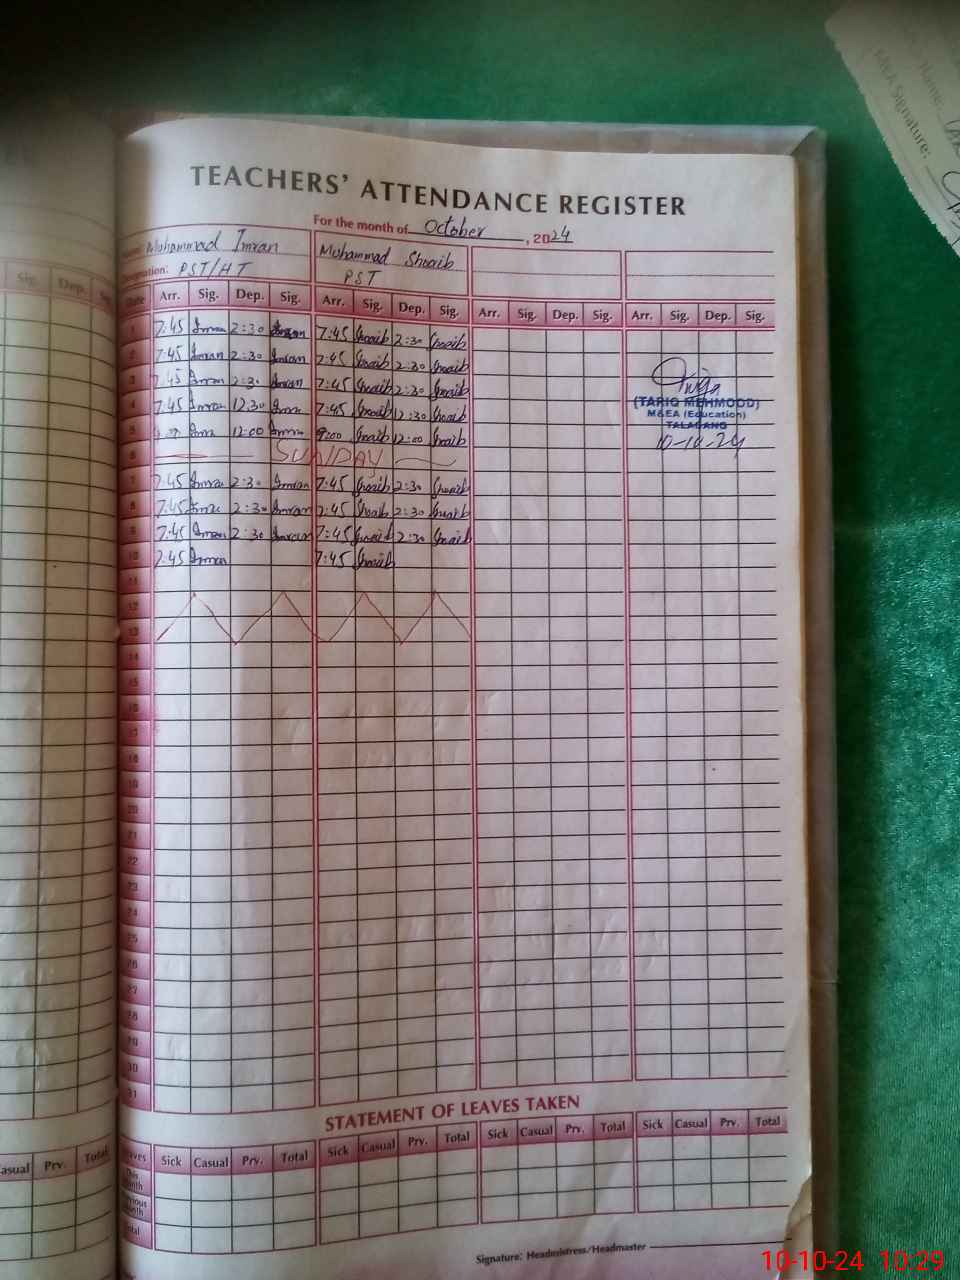 Name:
M&EA Signature:
TEACHERS' ATTENDANCE REGISTER
For the month of October, 2024
Mohammad Imran Mohammad Shoaib
Designation: PST/HT PST
Date Arr. Sig. Dep. Sig. Arr. Sig. Dep. Sig. Arr. Sig. Dep. Sig. Arr. Sig. Dep. Sig.
1 7:45 Imran 2:30 Imran 7:45 Shoaib 2:30 Shoaib
2 7:45 Imran 2:30 Imran 7:45 Shoaib 2:30 Shoaib
3 7:45 Imran 2:30 Imran 7:45 Shoaib 2:30 Shoaib
4 7:45 Imran 12:30 Imran 7:45 Shoaib 12:30 Shoaib
5 Imran 12:00 Imran 9:00 Shoaib 12:00 Shoaib
6 SUNDAY
7 7:45 Imran 2:30 Imran 7:45 Shoaib 2:30 Shoaib
8 7:45 Imran 2:30 Imran 7:45 Shoaib 2:30 Shoaib
9 7:45 Imran 2:30 Imran 7:45 Shoaib 2:30 Shoaib
10 7:45 Imran 7:45 Shoaib
(TARIQ MEHMOOD)
M&EA (Education)
TALAGANG
10-10-24
11
12
13
14
15
16
17
18
19
20
21
22
23
24
25
26
27
28
29
30
31
STATEMENT OF LEAVES TAKEN
Leaves Sick Casual Prv. Total Sick Casual Prv. Total Sick Casual Prv. Total Sick Casual Prv. Total
This Month
Previous Month
Total
Signature: Headmistress/Headmaster
Sig. Dep.
Casual Prv. Total
10-10-24 10:29